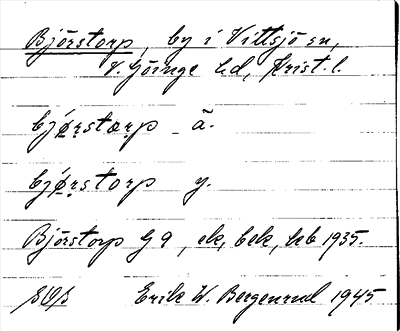 Björstorp, by i Vittsjö sn,
V. Göinge hd, Krist. l.
bjǿrstærp - ä.
bjǿrstorp y.
Björstorp G 9, ek, bek, hb 1935.
SOB Erik W. Bergenrud 1945